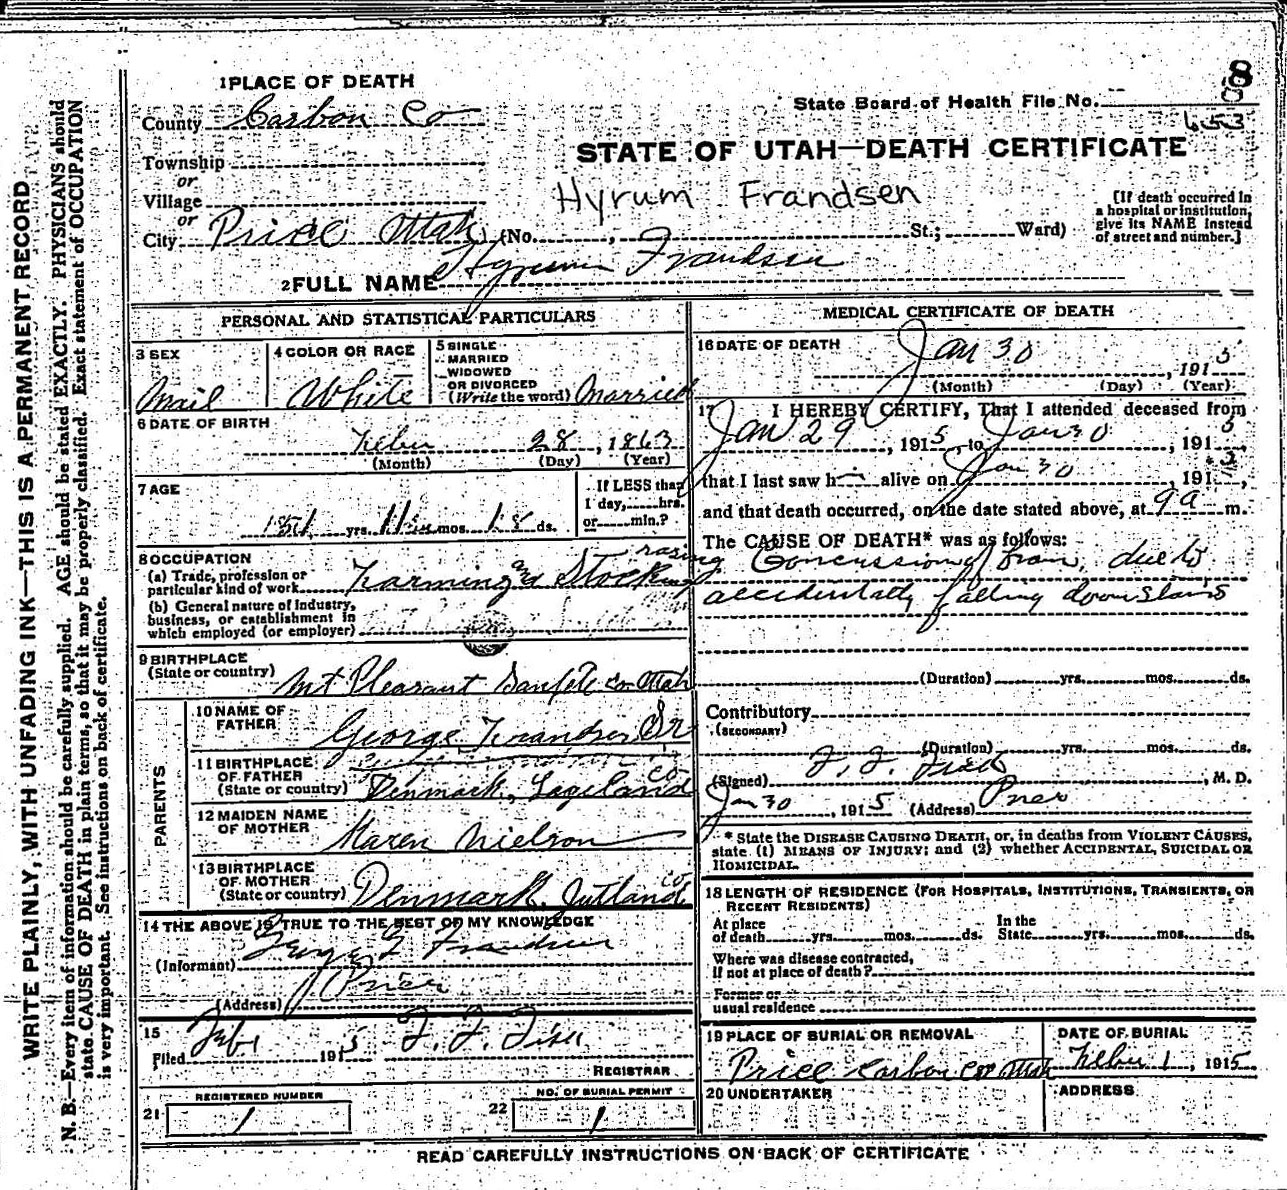 8
1 PLACE OF DEATH
State Board of Health File No. 653
County Carbon Co
STATE OF UTAH—DEATH CERTIFICATE
Township
or
Village
or
Hyrum Frandsen
City Price Utah (No. , St.; Ward)
[If death occurred in
a hospital or institution,
give its NAME instead
of street and number.]
2 FULL NAME Hyrum Frandsen
PERSONAL AND STATISTICAL PARTICULARS
3 SEX
Mail
4 COLOR OR RACE
White
5 SINGLE
MARRIED
WIDOWED
OR DIVORCED
(Write the word) Married
6 DATE OF BIRTH
28, 1863
(Month) (Day) (Year)
7 AGE
51 yrs. 11 mos. ds.
If LESS than
1 day, hrs.
or min.?
8 OCCUPATION
(a) Trade, profession or
particular kind of work Farming and Stock rasing
(b) General nature of industry,
business, or establishment in
which employed (or employer)
9 BIRTHPLACE
(State or country)
Mt Pleasant Sanpete co Utah
PARENTS
10 NAME OF
FATHER
George Frandsen Sr
11 BIRTHPLACE
OF FATHER
(State or country) Denmark, co
12 MAIDEN NAME
OF MOTHER
Maren Nielson
13 BIRTHPLACE
OF MOTHER
(State or country) Denmark. Jutland co
14 THE ABOVE IS TRUE TO THE BEST OF MY KNOWLEDGE
(Informant) Frandsen
(Address) Price
15
Filed Feb 1 1915
REGISTRAR
REGISTERED NUMBER
21 1
NO. OF BURIAL PERMIT
22 1
MEDICAL CERTIFICATE OF DEATH
16 DATE OF DEATH
Jan 30, 1915
(Month) (Day) (Year)
17 I HEREBY CERTIFY, That I attended deceased from
Jan 29, 1915, to Jan 30, 1915
that I last saw h alive on Jan 30, 1915,
and that death occurred, on the date stated above, at 9 a m.
The CAUSE OF DEATH* was as follows:
Concussion of brain, due to
accidentally falling down stairs
(Duration) yrs. mos. ds.
Contributory
(SECONDARY)
(Duration) yrs. mos. ds.
(Signed) M. D.
Jan 30, 1915 (Address) Price
* State the DISEASE CAUSING DEATH, or, in deaths from VIOLENT CAUSES,
state (1) MEANS OF INJURY; and (2) whether ACCIDENTAL, SUICIDAL OR
HOMICIDAL.
18 LENGTH OF RESIDENCE (FOR HOSPITALS, INSTITUTIONS, TRANSIENTS, OR
RECENT RESIDENTS)
At place
of death yrs. mos. ds.
In the
State yrs. mos. ds.
Where was disease contracted,
if not at place of death?
Former or
usual residence
19 PLACE OF BURIAL OR REMOVAL
Price Carbon co Utah
DATE OF BURIAL
1, 1915
20 UNDERTAKER
ADDRESS
READ CAREFULLY INSTRUCTIONS ON BACK OF CERTIFICATE
WRITE PLAINLY, WITH UNFADING INK—THIS IS A PERMANENT RECORD
N. B.—Every item of information should be carefully supplied. AGE should be stated EXACTLY. PHYSICIANS should
state CAUSE OF DEATH in plain terms, so that it may be properly classified. Exact statement of OCCUPATION
is very important. See instructions on back of certificate.